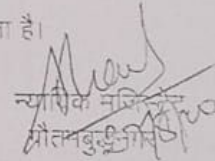 ा है।
न्यायिक मजिस्ट्रेट
गौतमबुद्धनगर